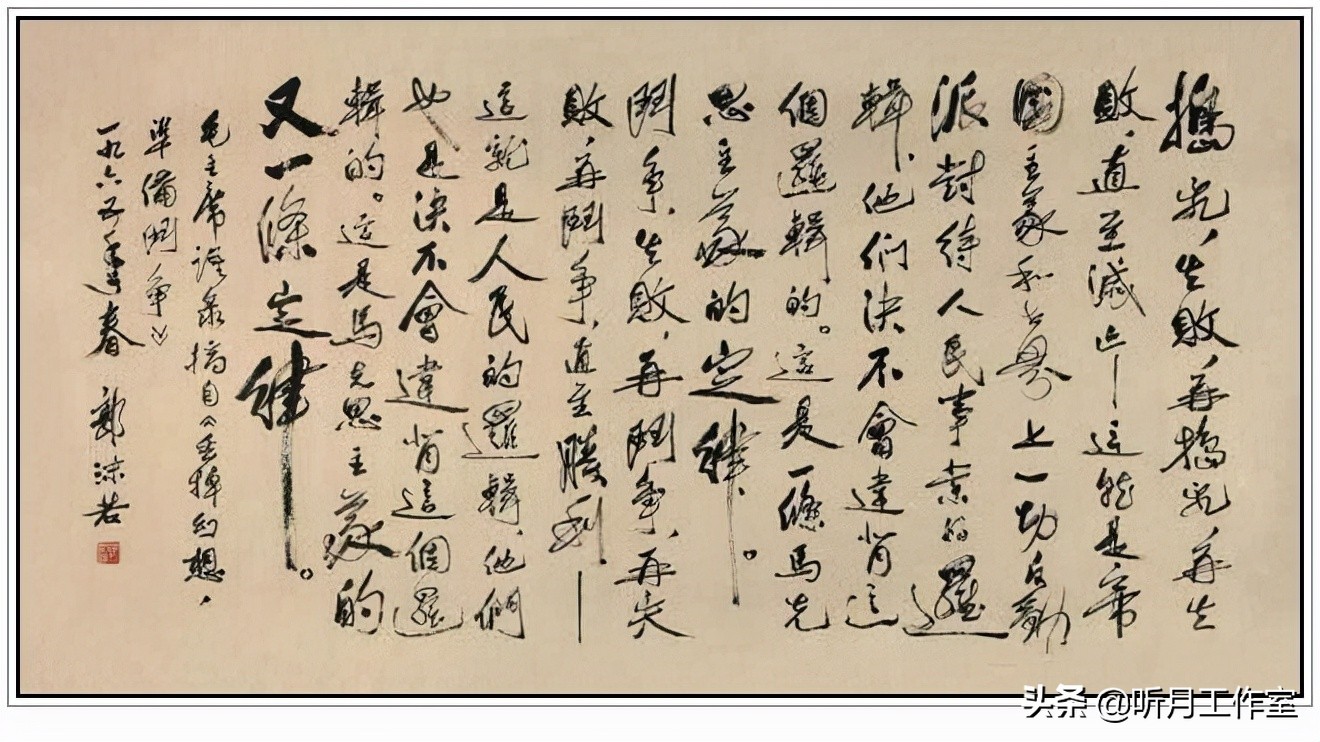 搗亂，失敗，再搗亂，再失
敗，直至滅亡——這就是帝
國主義和世界上一切反動
派對待人民事業的邏
輯，他們決不會違背這
個邏輯的。這是一條馬克
思主義的定律。
鬥爭，失敗，再鬥爭，再失
敗，再鬥爭，直至勝利——
這就是人民的邏輯，他們
也是決不會違背這個邏
輯的。這是馬克思主義的
又一條定律。
毛主席語錄摘自《丟掉幻想，
準備鬥爭》
一九六五年春 郭沫若
头条 @听月工作室